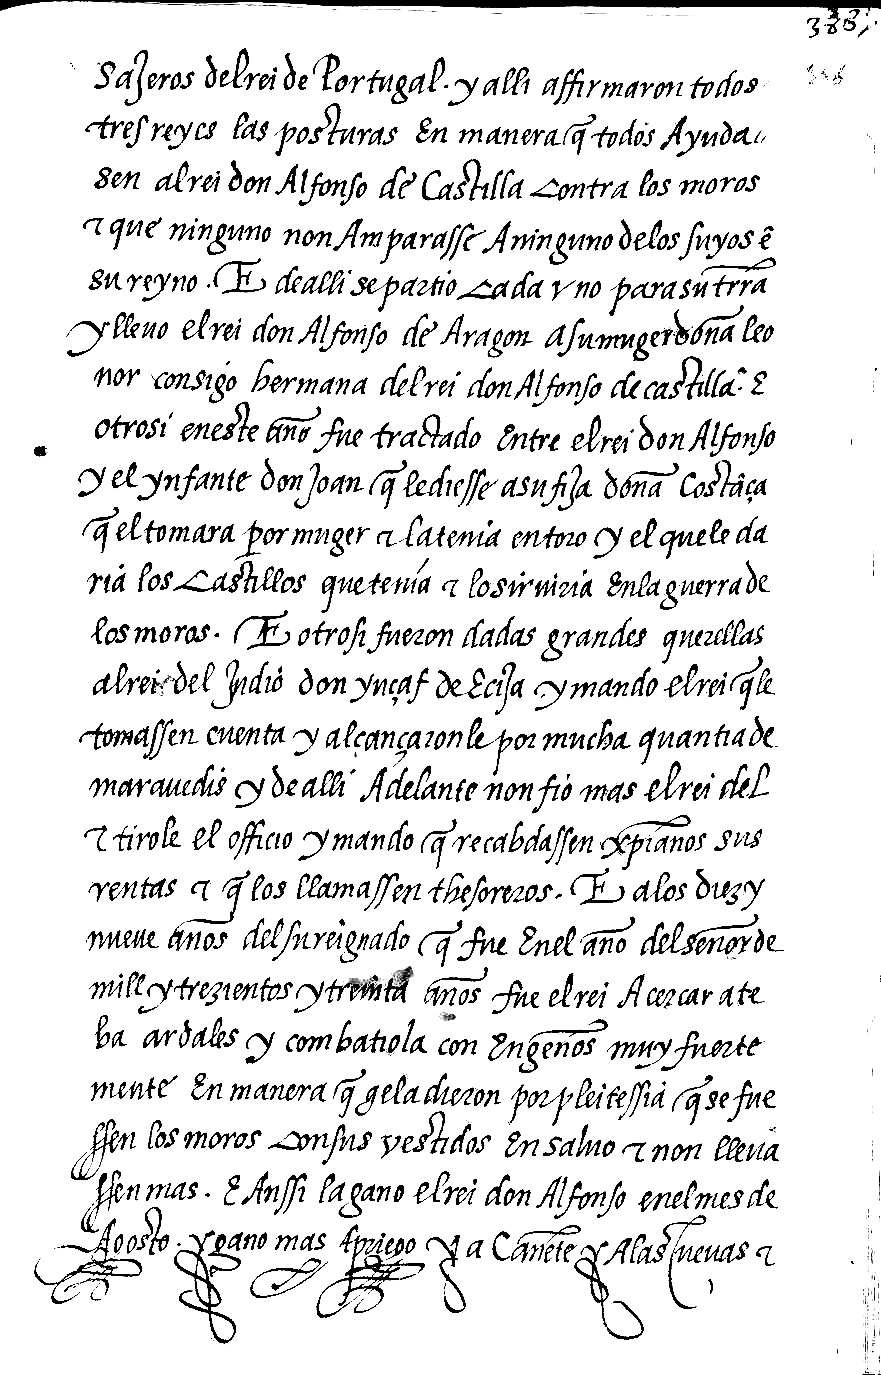 387.
sajeros del rei de Portugal. y alli affirmaron todos
tres reyes las posturas En manera q̃ todos Ayuda
sen al rei don Alfonso de Castilla Contra los moros
τ que ninguno non Amparasse A ninguno de los suyos ẽ
su reyno. E de alli se partio Cada vno para su trr̃a
y lleuo el rei don Alfonso de Aragon a su muger doña leo
nor consigo hermana del rei don Alfonso de castilla. E
otrosi en este año fue tractado Entre el rei don Alfonso
y el ynfante don Joan q̃ le diesse a su fija doña Costãça
q̃ el tomara por muger τ la tenia en toro y el que le da
ria los Castillos que tenía τ lo siruiria En la guerra de
los moros. E otrosi fueron dadas grandes querellas
al rei del Judio don yuçaf de Ecija y mando el rei q̃ le
tomassen cuenta y alcançaronle por mucha quantia de
marauedis y de alli Adelante non fio mas el rei del
τ tirole el officio y mando q̃ recabdassen xp̃ianos sus
rentas τ q̃ los llamassen thesoreros. E a los diez y
nueue años del su reignado q̃ fue En el año del señor de
mill y trezientos y treinta años fue el rei A cercar a te
ba ardales y combatiola con Engeños muy fuerte
mente En manera q̃ gela dieron por pleitessia q̃ se fue
ssen los moros Con sus vestidos En saluo τ non lleua
ssen mas. E Anssi la gano el rei don Alfonso en el mes de
Agosto. y gano mas Apriego y a Cañete y A las Cueuas τ